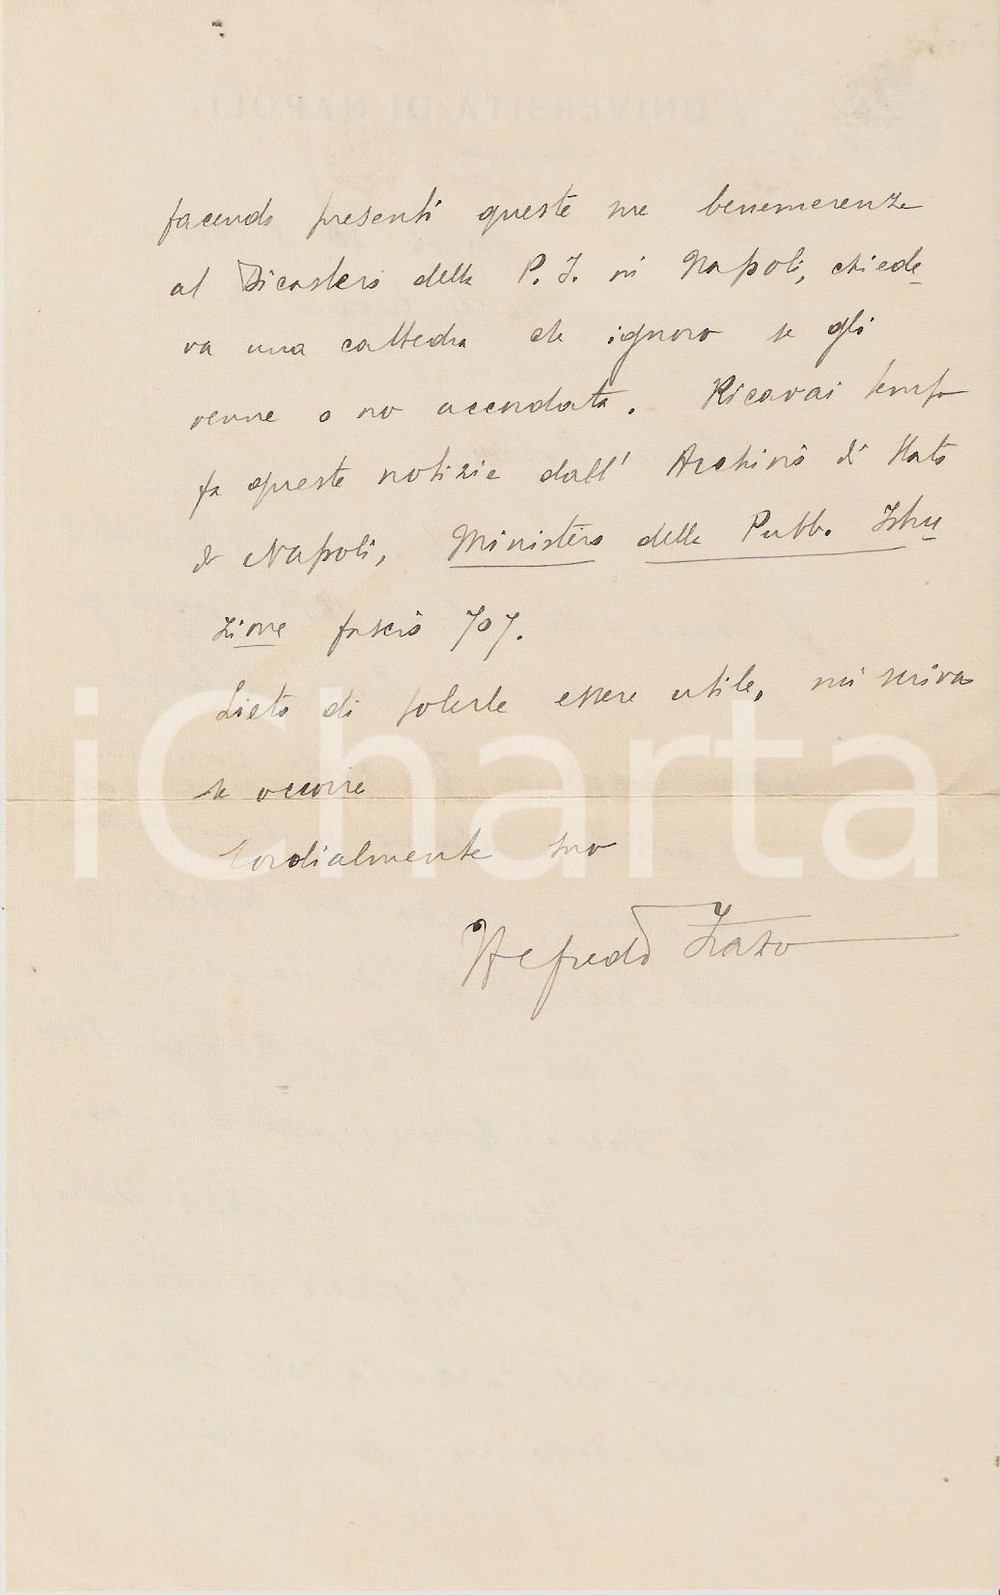 facendo presenti queste sue benemerenze
al Dicastero della P. I. in Napoli, chiede-
va una cattedra che ignoro se gli
venne o no accordata. Ricavai tempo
fa queste notizie dall' Archivio di Stato
di Napoli, Ministero della Pubb. Istru
zione fascio 707.
Lieto di poterle essere utile, mi scriva
se occorre
Cordialmente suo
Alfredo Zazo
iCharta
UNIVERSITÀ DI NAPOLI